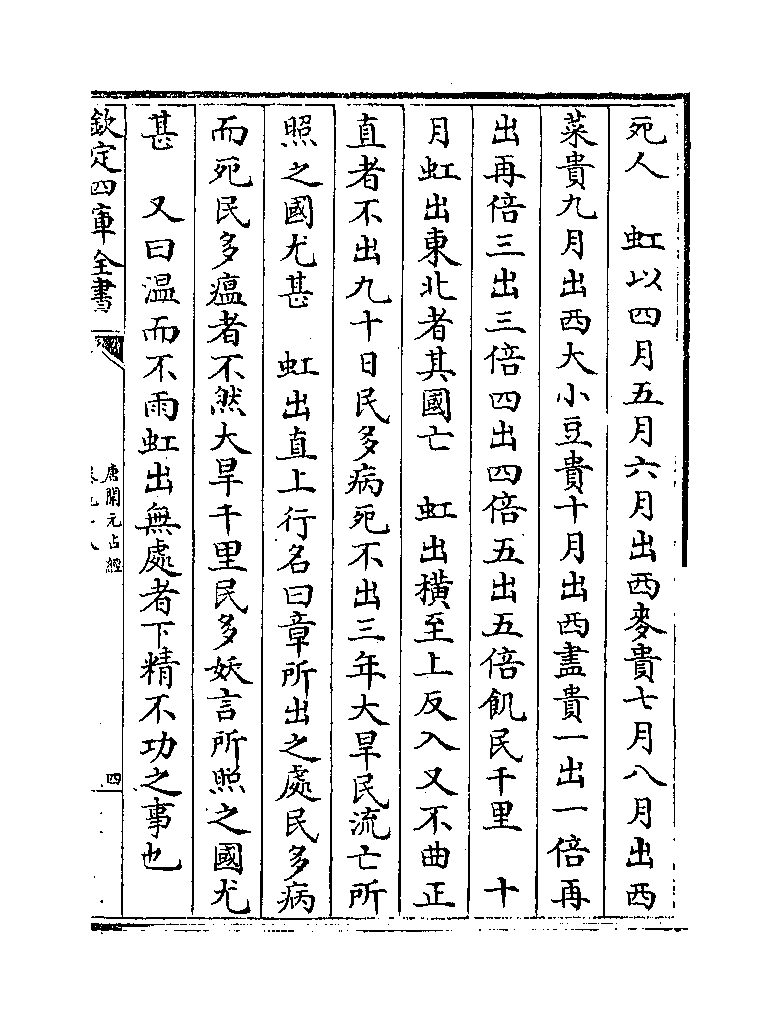 死人　虹以四月五月六月出西麥貴七月八月出西
菜貴九月出西大小豆貴十月出西盡貴一出一倍再
出再倍三出三倍四出四倍五出五倍飢民千里　十
月虹出東北者其國亡　虹出橫至上反入又不曲正
直者不出九十日民多病死不出三年大旱民流亡所
照之國尤甚　虹出直上行名曰章所出之處民多病
而死民多瘟者不然大旱千里民多妖言所照之國尤
甚　又曰温而不雨虹出無處者下精不功之事也
欽定四庫全書
唐開元占經
四